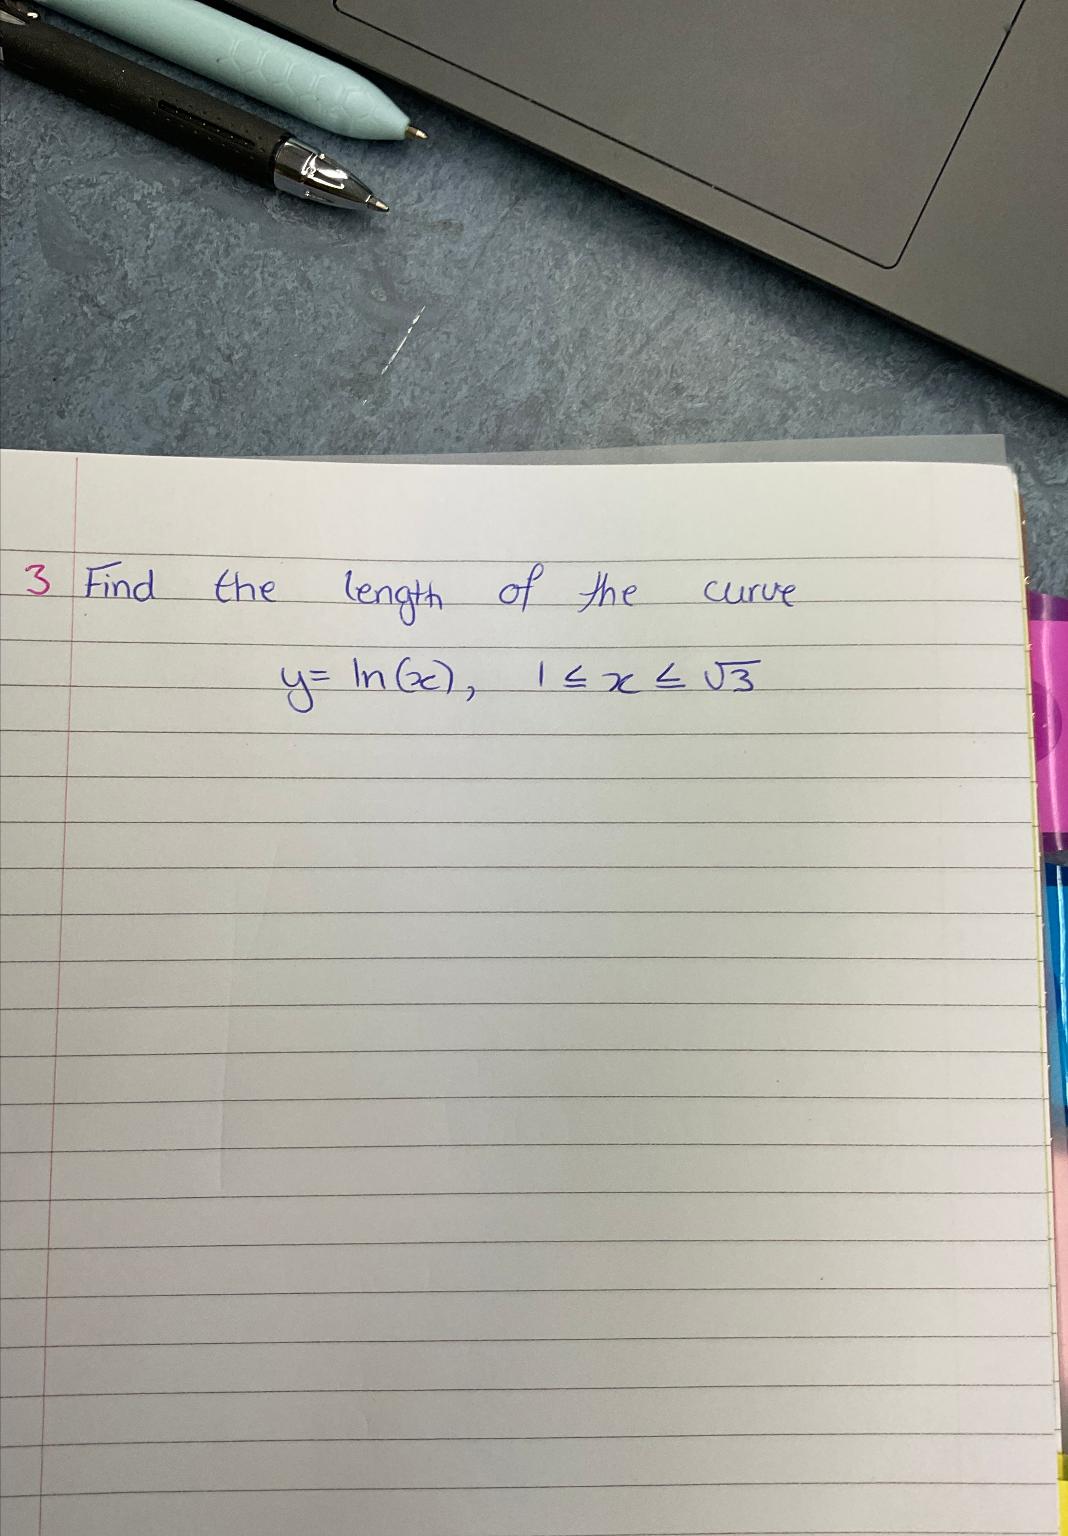 3 Find the length of the curve
y = ln(x), 1 ≤ x ≤ √3